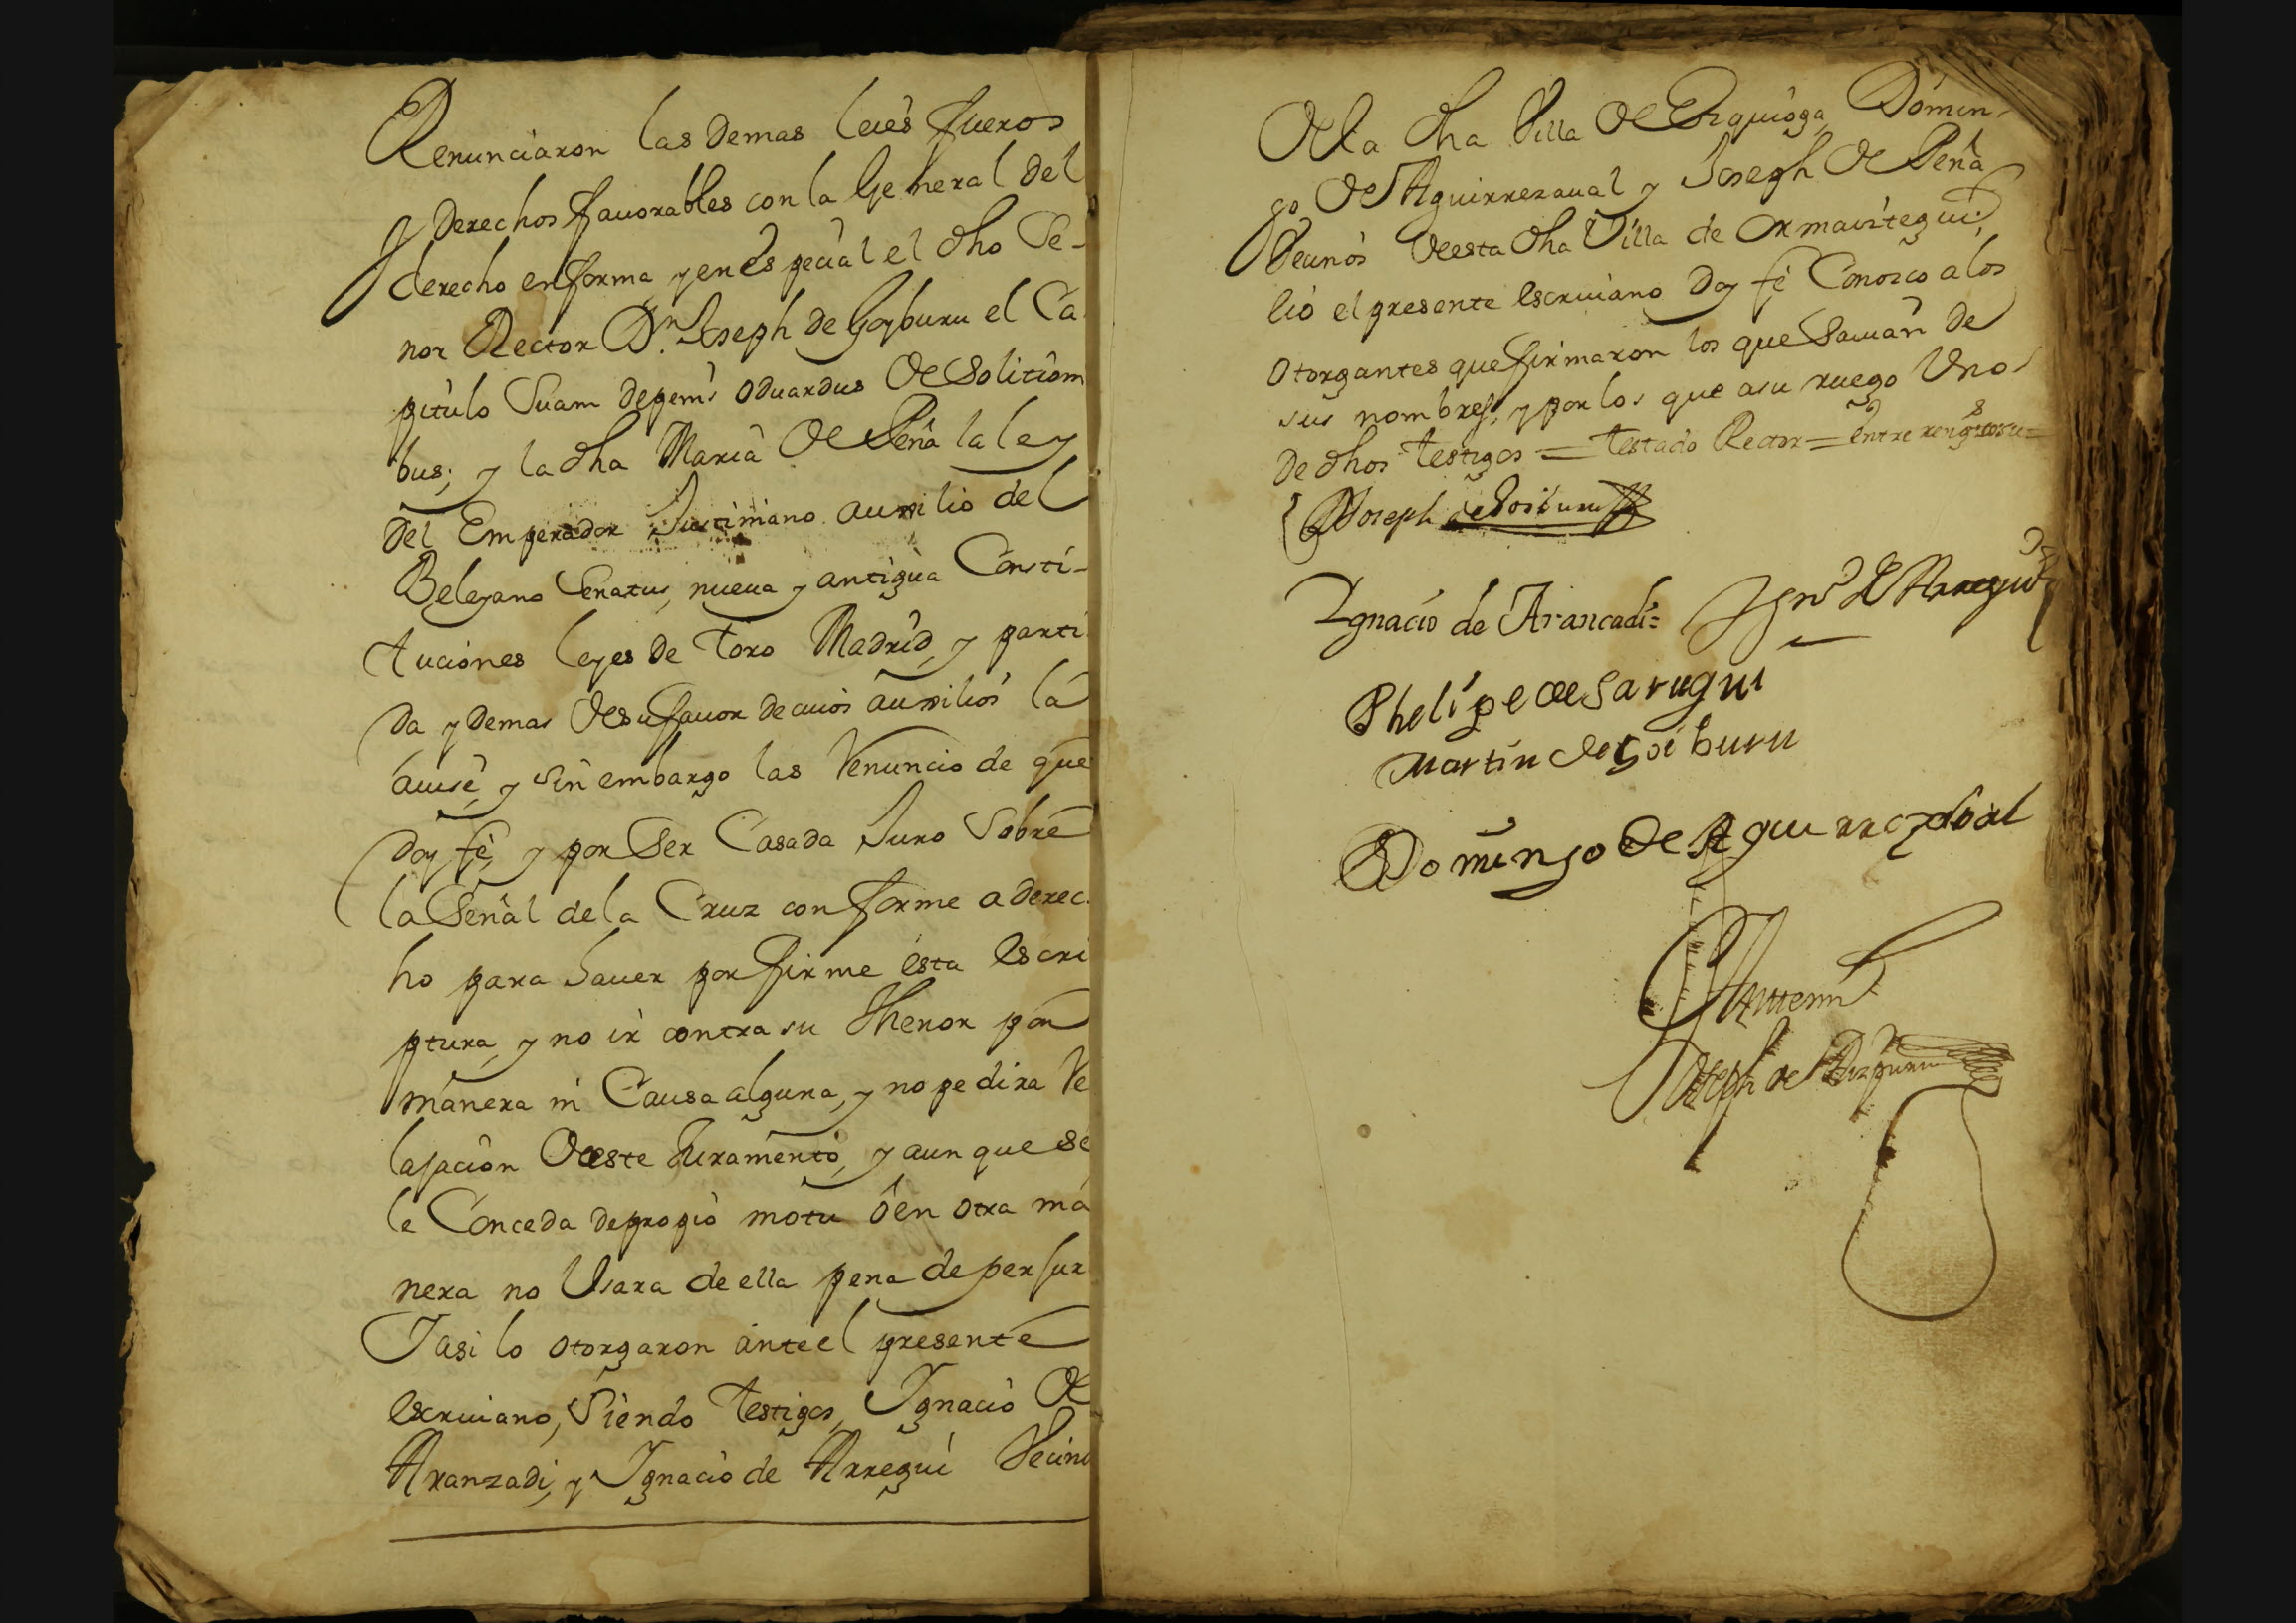 Renunciaron las demas leies fueros
y derechos favorables con la General del
derecho enforma, y en especial el dho Se-
nor Rector Dn. Joseph de Goyburu el Ca
pitulo Suam depenis oduardus de Solitiom
bus; y la dha Maria de Peña la ley
del Emperador Justiniano auxilio del
Belejano Senatus, nueva y antigua Consti-
tuciones leyes de Toro Madrid, y parti
da y demas de su favor de cuios auxilios la
auise, y sin embargo las Renuncio de que
doy fe, y por Ser Casada Juro Sobre
la Señal de la Cruz conforme a derec.
ho para hauer por firme esta Escri
ptura, y no ir contra su thenor por
manera ni Causa alguna, y no pedira Re
lajacion deeste Juramento, y aunque se
le Conceda de propio motu ó en otra ma
nera no Usara de ella pena de perjur
Y asi lo otorgaron ante el presente
escriuano, Siendo testigos, Ygnacio de
Aranzadi, y Ygnacio de Arregui Vecino
de la dha Villa de Ezquioga, Domin-
go de Aguirrezaual y Joseph de Peña
Vecinos deesta dha Villa de Ormaiztegui;
eió el presente escriuano doy fe Conozco a los
otorgantes que firmaron los que Sauian de
sus nombres, y por los que a su ruego Uno
de dhos testigos = testado Rector =
Dn Joseph de Goiburu
Ygnacio de Arancadi= Ygnº de Arregui
Phelipe de Sarugui
Martin de goiburu
Domingo de Aguirrezabal
Antemi
Joseph de Aizpuru